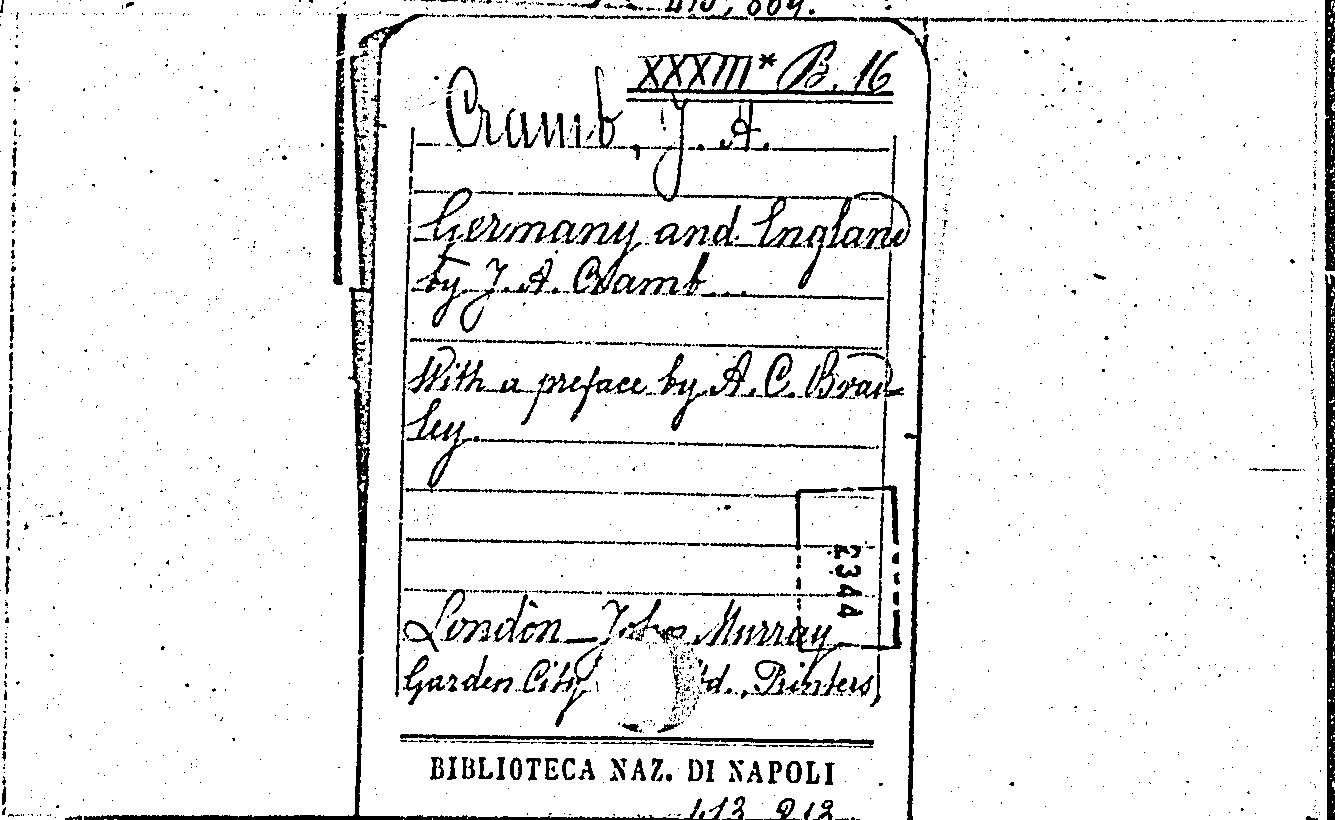 XXXIII* B. 16
Cramb, J. A.
Germany and England
by J. A. Cramb...
With a preface by A. C. Brad-
ley.
2344
London_John Murray
Garden City td., Printers,
BIBLIOTECA NAZ. DI NAPOLI